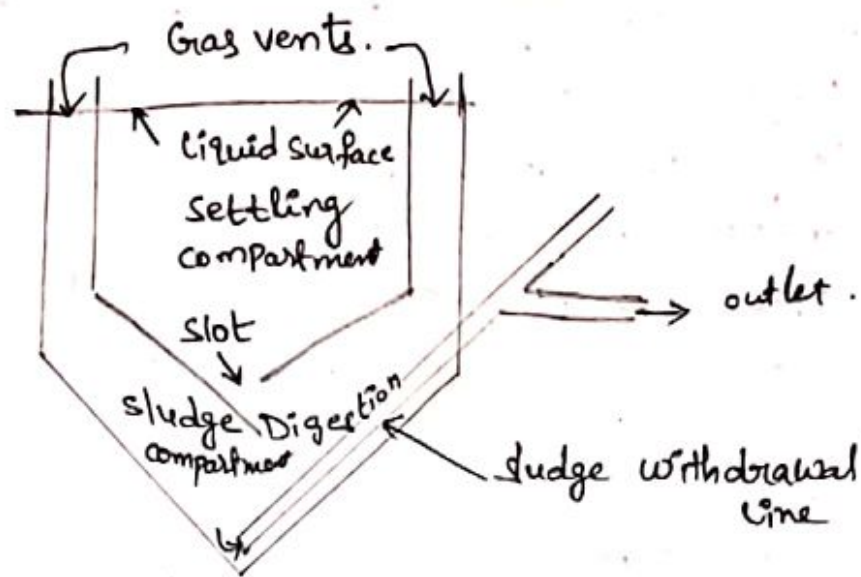 Gas vents.
liquid surface
settling
compartment
slot
outlet.
sludge Digestion
compartment
sludge withdrawal
line